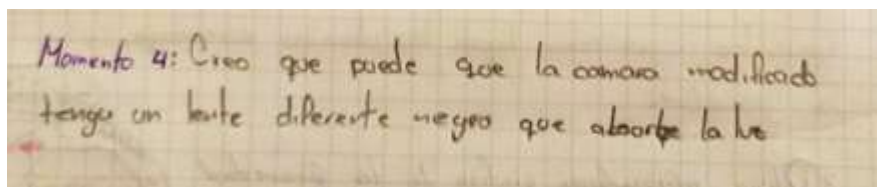 Momento 4: Creo que puede que la camara modificada
tenga un lente diferente negro que absorbe la luz